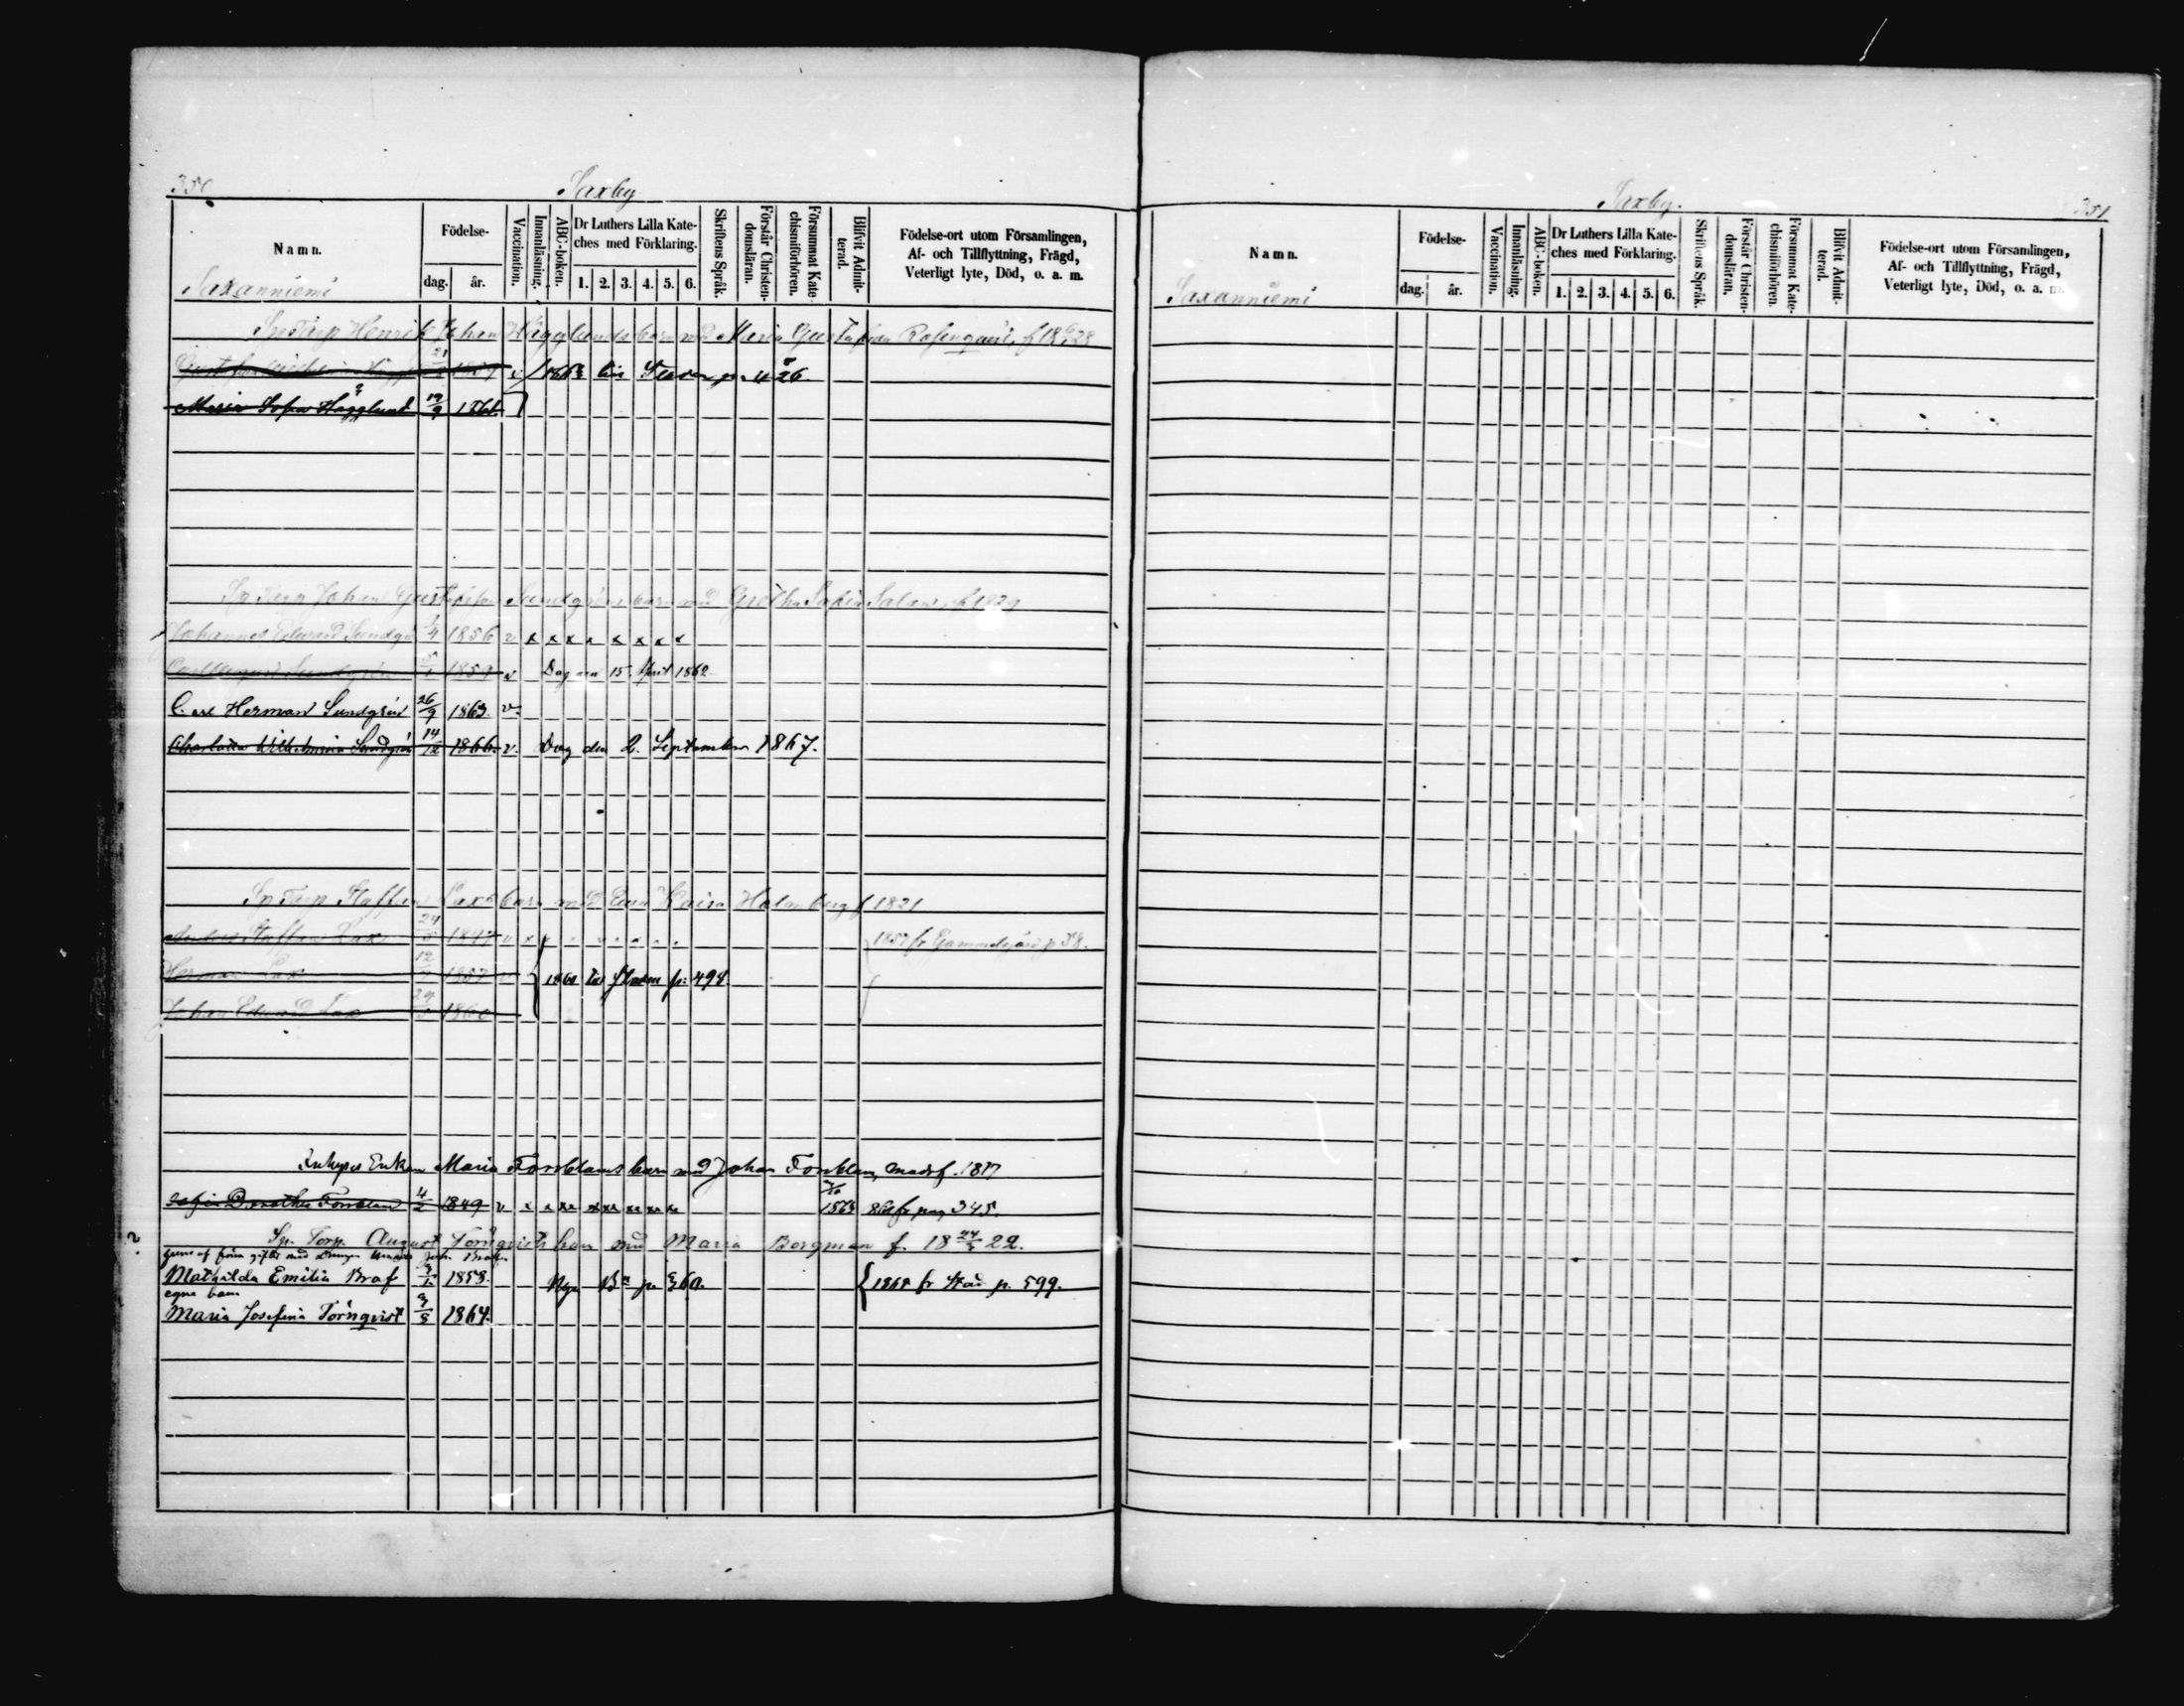 350
Saxby
Namn.
Födelse-
dag.
år.
Vaccination.
Innanläsning.
ABC-boken.
Dr Luthers Lilla Kate-
ches med Förklaring.
1. 2. 3. 4. 5. 6.
Skriftens Språk.
Förstår Christen-
domsläran.
Försummat Kate-
chismiförhören.
Blifvit Admit-
terad.
Födelse-ort utom Församlingen,
Af- och Tillflyttning, Frägd,
Veterligt lyte, Död, o. a. m.
Saxanniemi
Sp Torp Henrik Johan Hägglunds barn med Maria Gustafsdr Rosenqvist, f 18 28
1857 v 1863 till Staden p. 426.
Maria Sofia Hägglund 19/9 1861.
Sp Torp Johan Gustafsson Sundgréns barn med Gretha Sofia f 1829
Johannes Edvard Sundgr 1856 v x x x x x x x x
Carl August Sundgrén 1859 v Dog den 15 April 1862
Carl Herman Sundgrén 26/9 1863. v.
Charlotta Wilhelmina Sundgrén 14/12 1866. v. Dog den 2. September 1867.
Sp Torp Staffan Lax barn med Eva Kaisa Holmberg f 1821
Staffan Lax 24 1847 v x 1857 fr Gammelgård p 58.
Herman Lax 12 1857 1861 till Staden p: 498
Johan Edvard Lax 24 1860
Inhyses Enkan Maria Forsblams barn med Johan Forsblom, Modr f. 1817
Sofia Dorothea Forsblom 4/2 1849 v x x xx xx xx xx xx 1863 fr pag 345.
Sp. Torp. August Törnqvists barn med Maria Borgman f. 18 24/3 22.
Mathilda Emilia Braf 1853. Nya Bn p. 360. 1865 fr p. 599.
egna barn
Maria Josefina Törnqvist 3/3 1864.
Saxby.
351
Namn.
Födelse-
dag.
år.
Vaccination.
Innanläsning.
ABC-boken.
Dr Luthers Lilla Kate-
ches med Förklaring.
1. 2. 3. 4. 5. 6.
Skriftens Språk.
Förstår Christen-
domsläran.
Försummat Kate-
chismiförhören.
Blifvit Admit-
terad.
Födelse-ort utom Församlingen,
Af- och Tillflyttning, Frägd,
Veterligt lyte, Död, o. a. m.
Saxanniemi